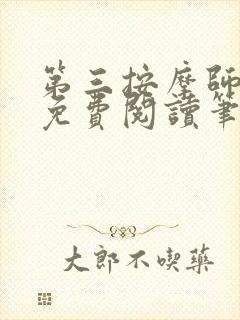 第三按摩師
免費閱讀筆
大郎不喫藥